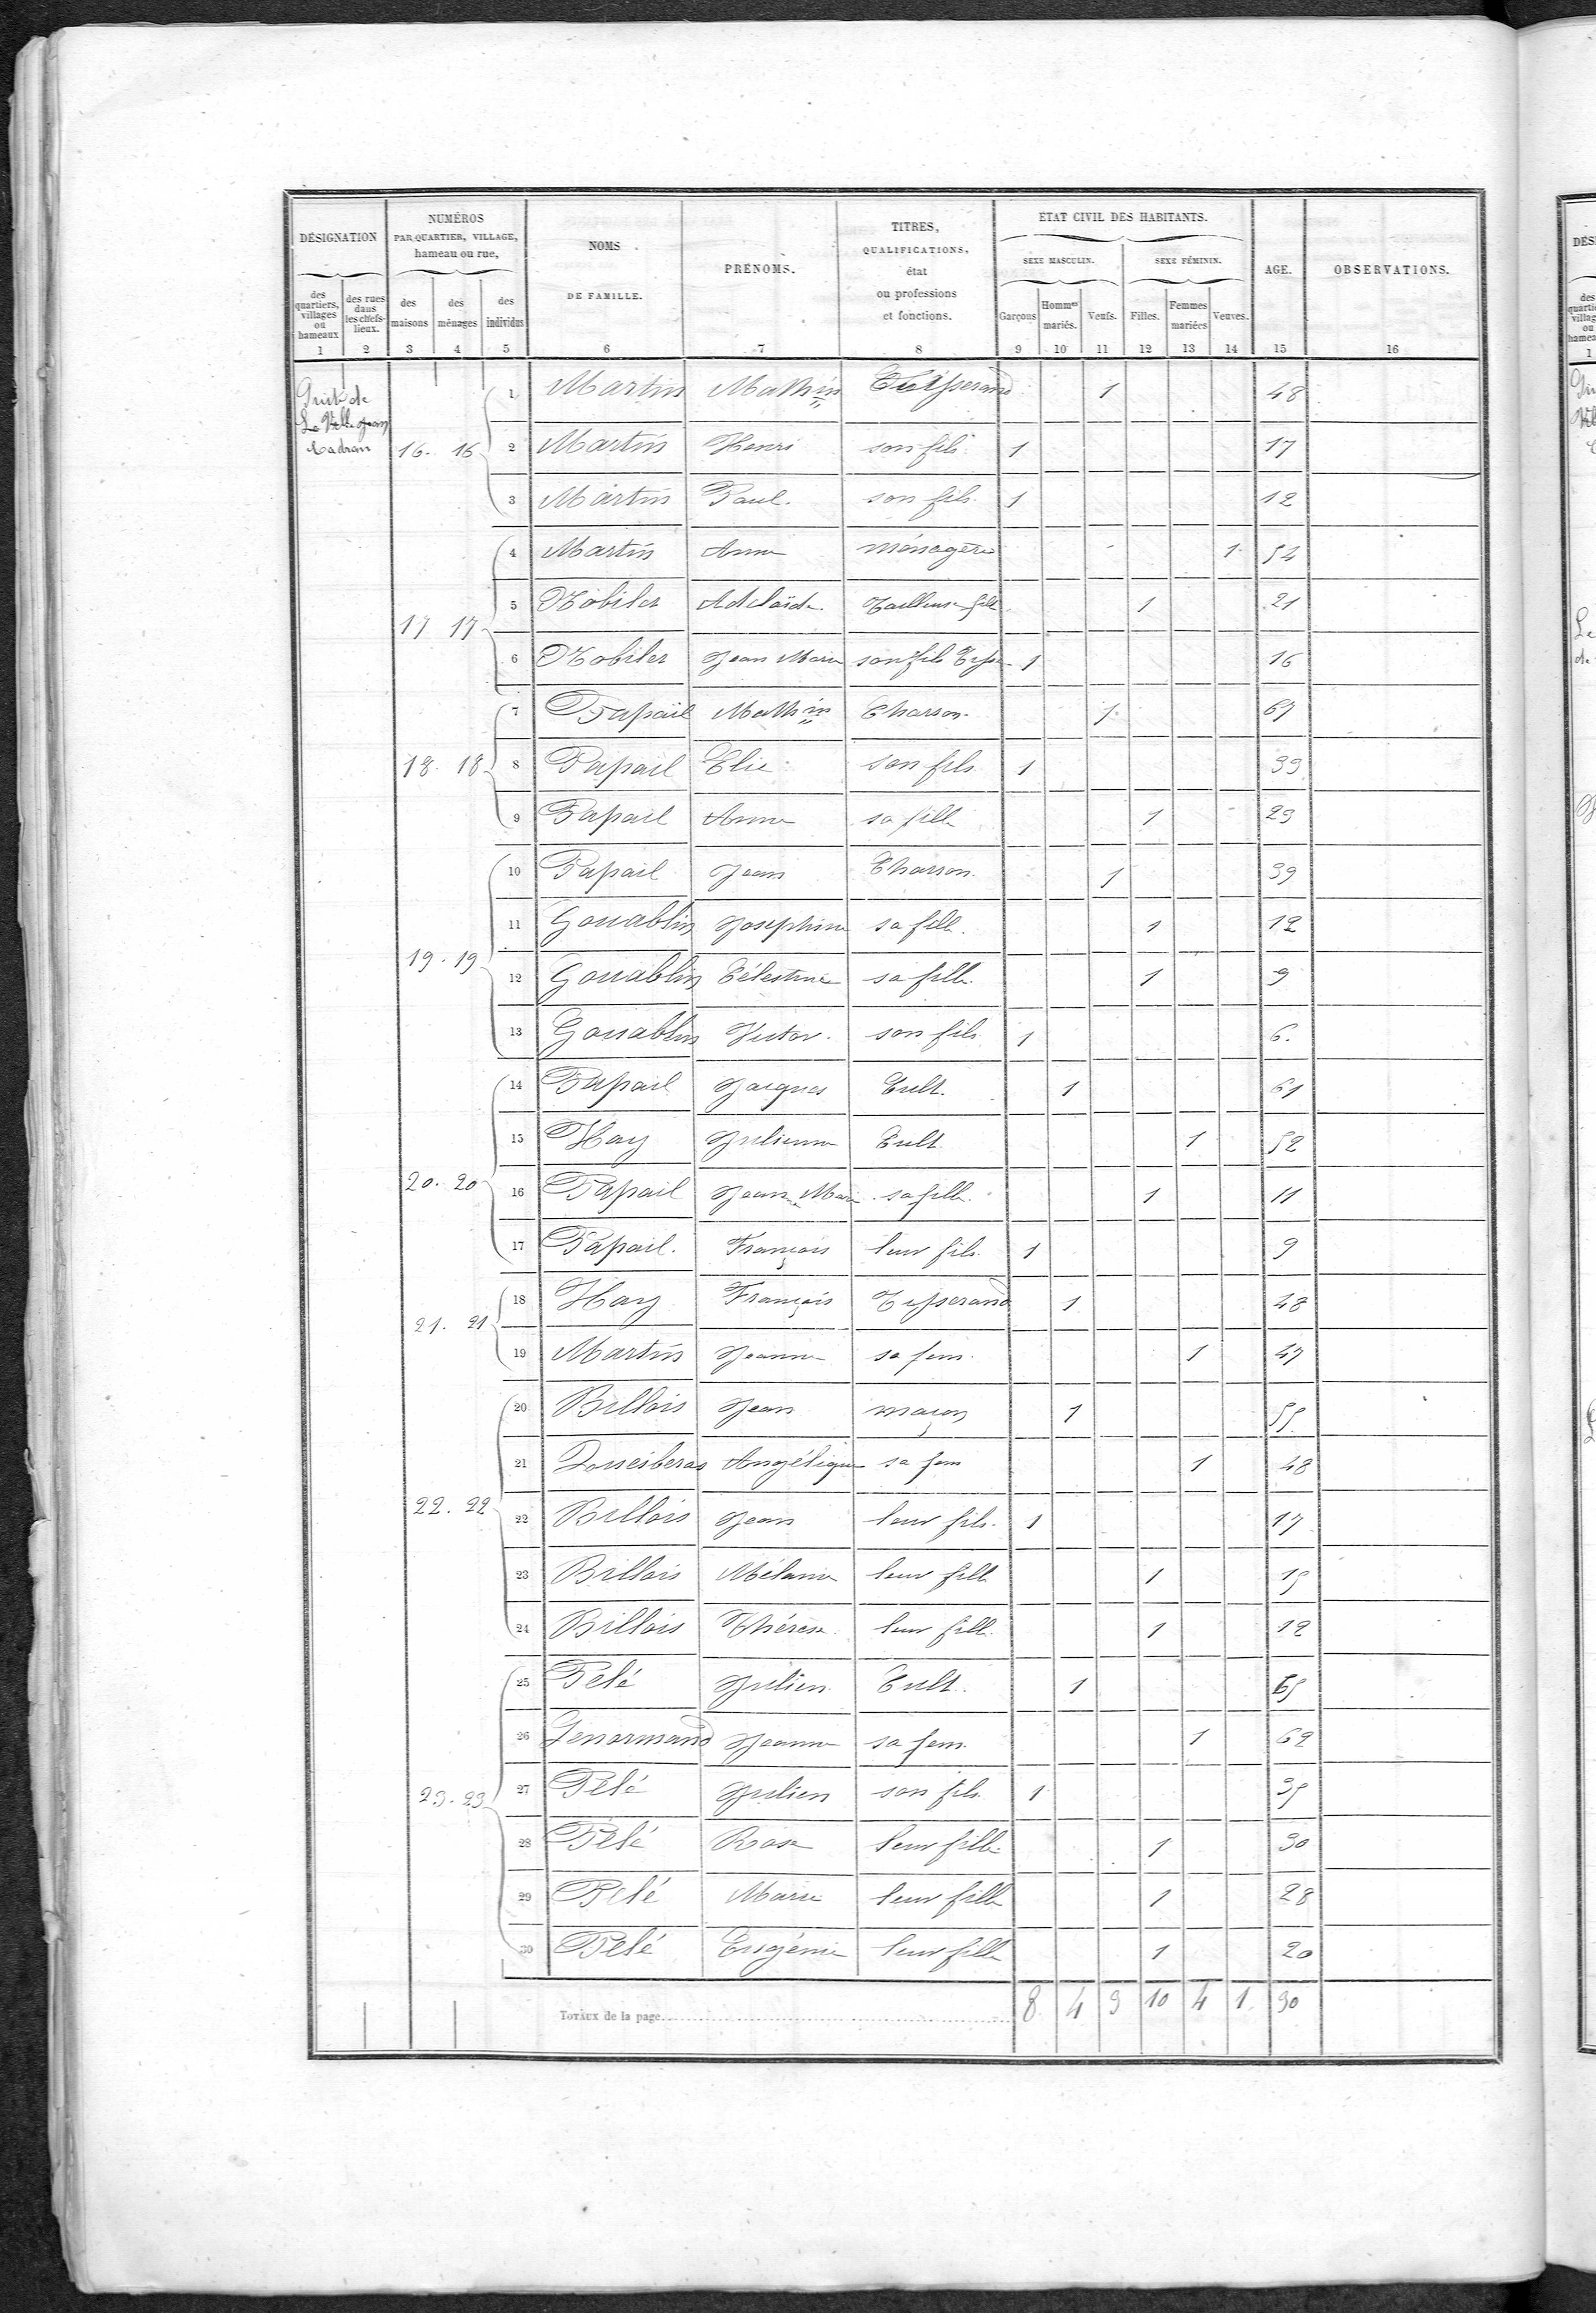 DÉSIGNATION
NUMÉROS PAR QUARTIER, VILLAGE, hameau ou rue,
NOMS DE FAMILLE.
PRÉNOMS.
TITRES, QUALIFICATIONS, état ou professions et fonctions.
ÉTAT CIVIL DES HABITANTS.
AGE.
OBSERVATIONS.
SEXE MASCULIN. SEXE FÉMININ.
des quartiers, villages ou hameaux
des rues dans les chefs-lieux.
des maisons
des ménages
des individus
Garçons Hommes mariés. Veufs. Filles. Femmes mariées Veuves.
1 2 3 4 5 6 7 8 9 10 11 12 13 14 15 16
de
16. 16
1 Martin Math in Tisserand 1 48
2 Martin Henri son fils 1 17
3 Martin Paul. son fils 1 12
17 17
4 Martin Anne ménagère 1 54
5 Nobilet Adelaïde Tailleuse fille 1 21
6 Nobilet Jean Marie son fils Tiss 1 16
18. 18
7 Papail Math in Charron 1 67
8 Papail Elie son fils 1 39
9 Papail Anne sa fille 1 29
19. 19
10 Papail Jean Charron 1 39
11 Gouablin Joséphine sa fille. 1 12
12 Gouablin Célestine sa fille. 1 9
13 Gouablin Victor. son fils 1 6.
20. 20
14 Papail Jacques Cult. 1 61
15 Hay Julienne Cult 1 52
16 Papail Jeanne Marie sa fille. 1 11
17 Papail. François leur fils 1 9
21. 21
18 Hay François Tisserand 1 48
19 Martin Jeanne sa fem. 1 47
22. 22
20 Billois Jean maçon 1 55
21 Angélique sa fem 1 48
22 Billois Jean leur fils. 1 17
23 Billois Mélanie leur fille 1 15
24 Billois Thérèse leur fille. 1 12
23. 23
25 Pelé Julien Cult. 1 65
26 Lenormand Jeanne sa fem. 1 62
27 Pelé Julien son fils 1 35
28 Pelé Rose leur fille. 1 30
29 Pelé Marie leur fille 1 28
30 Pelé Eugénie leur fille 1 20
TOTAUX de la page 8 4 3 10 4 1 30